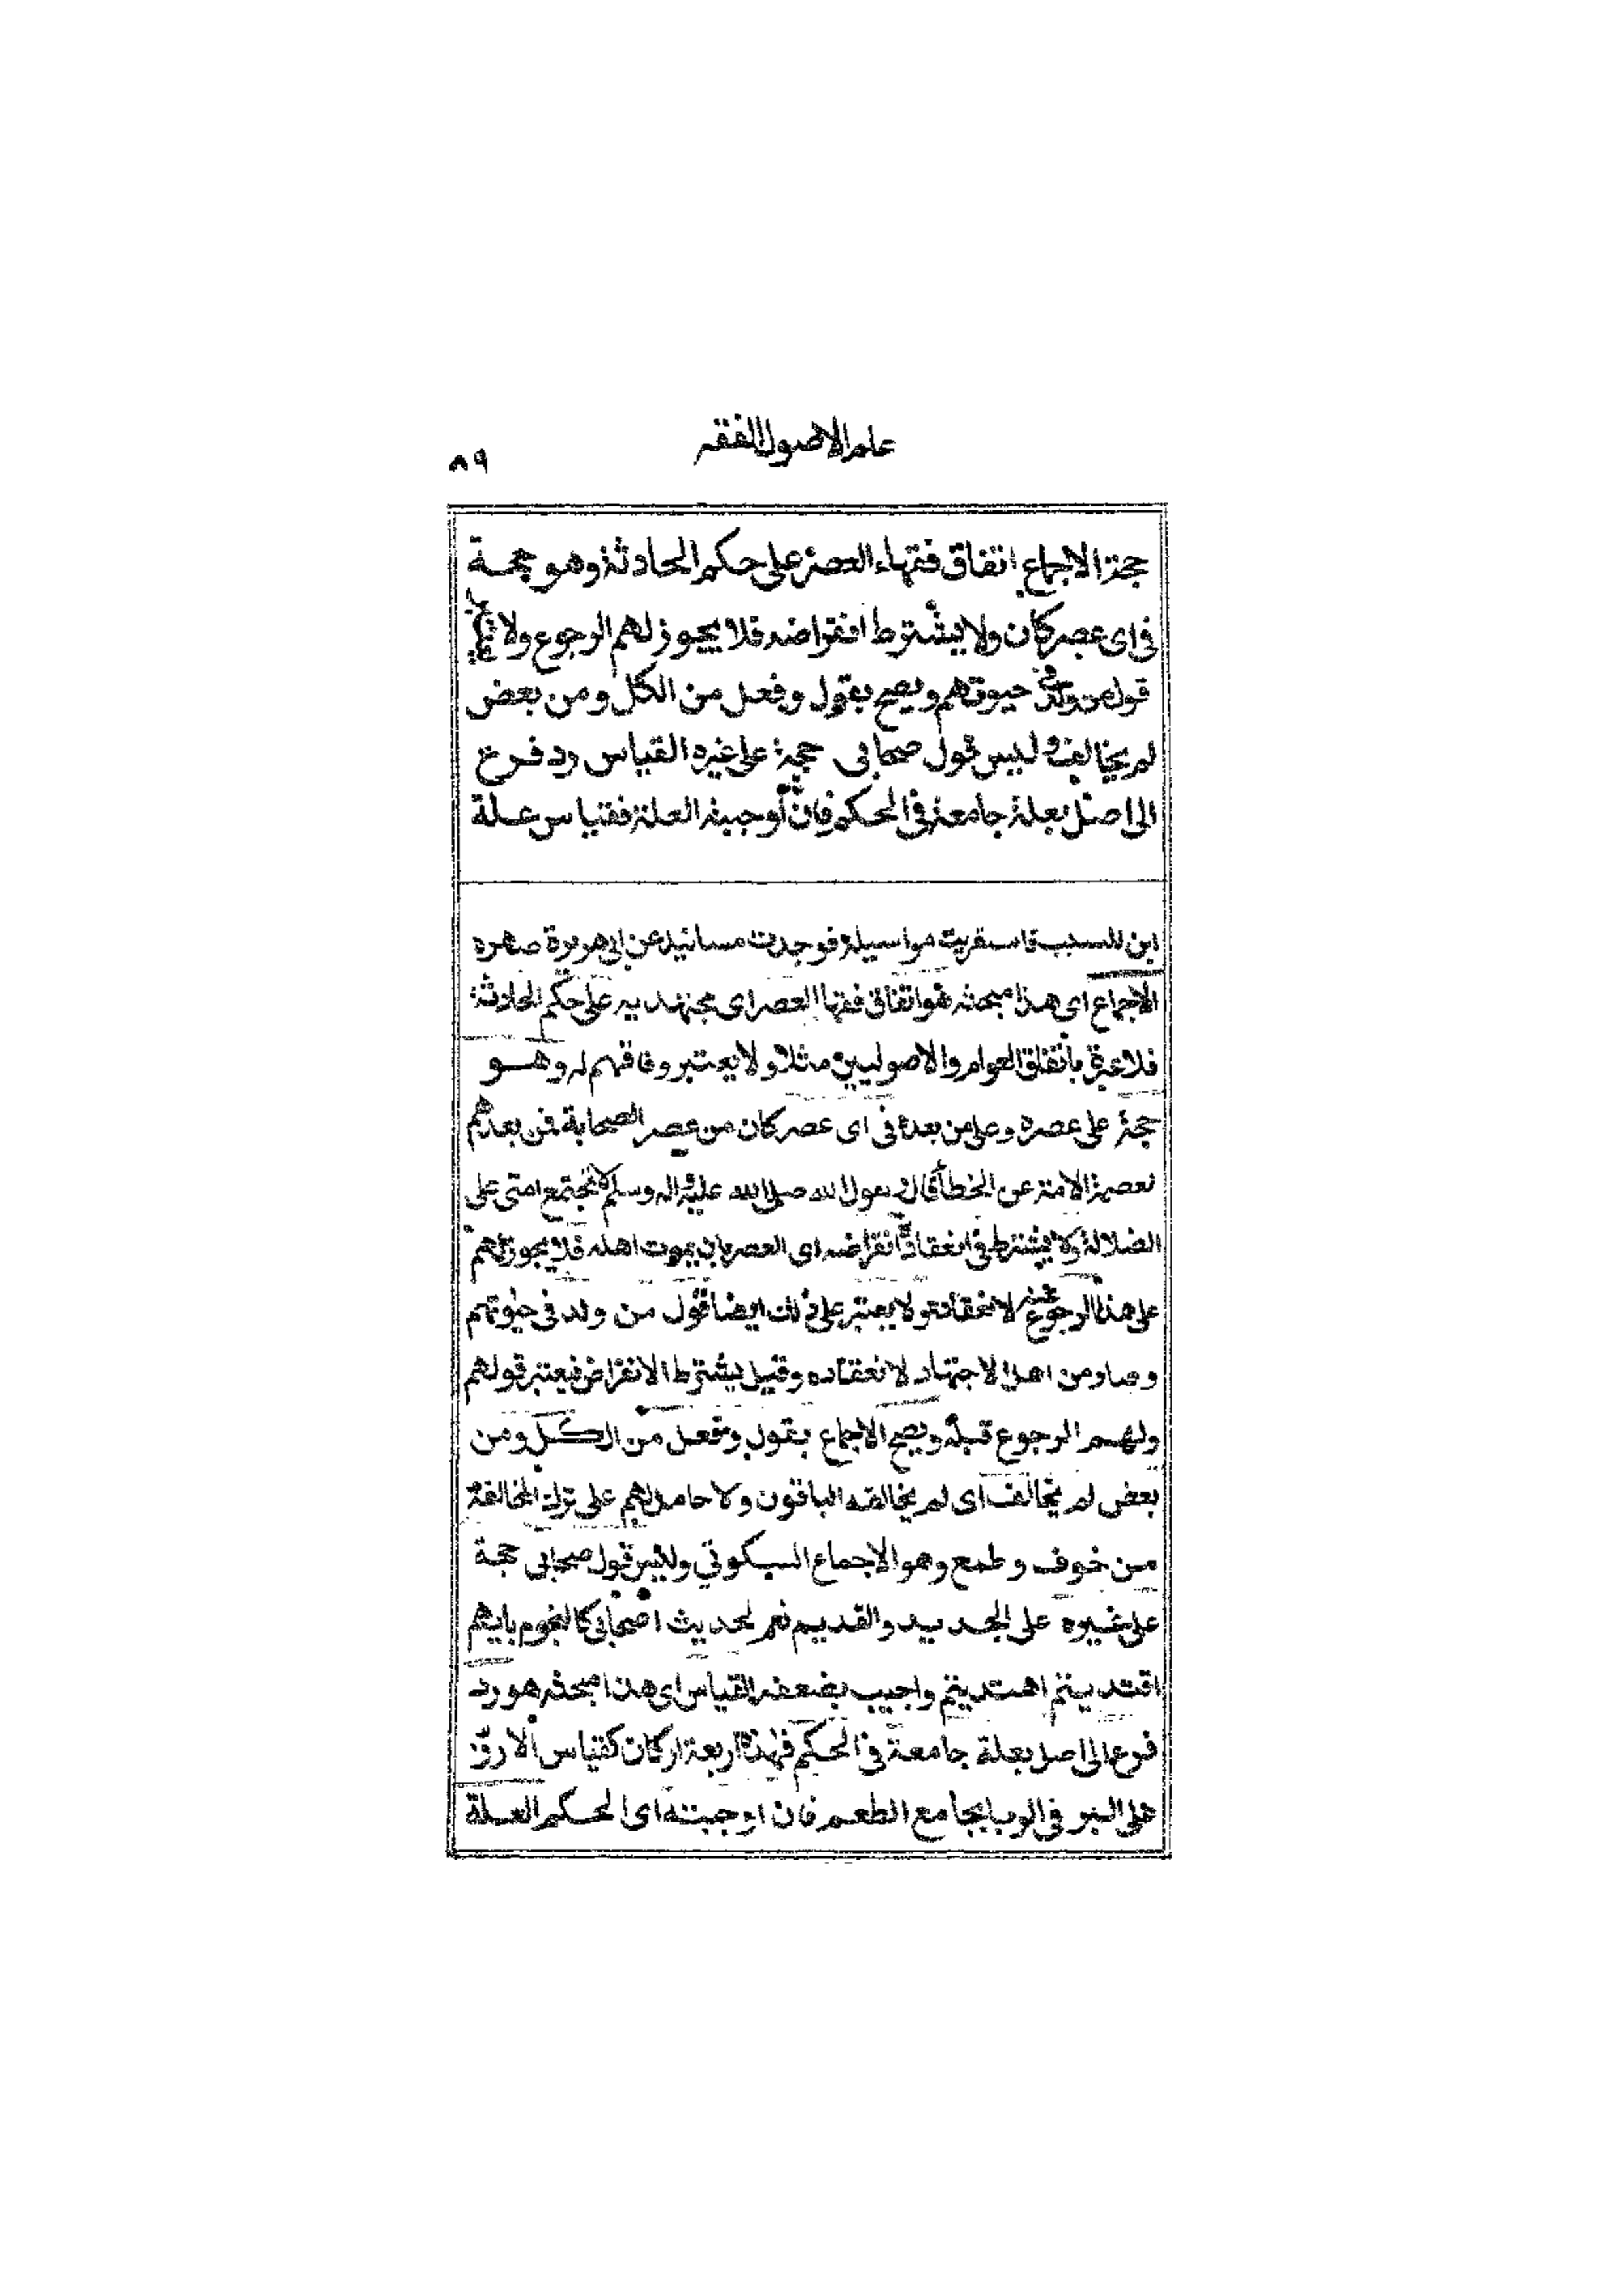 علم الاصول الفقه
٨٩
حجة الاجماع اتفاق فقهاء العصر على حكم الحادثة وهو حجة
فى اى عصر كان ولا يشترط انقراضه فلا يجوز لهم الرجوع ولا يعتبر
قول من ولد فى حيوتهم ويصح بقول وفعل من الكل ومن بعض
لم يخالف وليس قول صحابى حجة على غيره القياس رد فرع
الى اصل بعلة جامعة فى الحكم فان أوجبته العلة فقياس علة
ابن المسيب فاستقريت مراسيله فوجدت مسانيد عن ابى هريرة صهره
الاجماع اى هذا مبحثه هو اتفاق فقهاا العصر اى مجتهديه على حكم الحادثة
فلا عبرة باتفاق العوام والاصوليين مثلا ولا يعتبر وفاقهم له وهو
حجة على عصره وعلى من بعده فى اى عصر كان من عصر الصحابة فمن بعدهم
لعصمة الامة عن الخطأ قال رسول الله صلى الله عليه واله وسلم لا تجتمع امتى على
الضلالة ولا يشترط فى انعقاده انقراضه اى العصر بان يموت اهله فلا يجوز لهم
على هذا الرجوع عنه لانعقاده ولا يعتبر على ذلك ايضا قول من ولد فى حيوتهم
وصار من اهل الاجتهاد لانعقاده وقيل يشترط الانقراض فيعتبر قولهم
ولهم الرجوع قبله ويصح الاجماع بقول وفعل من الكل ومن
بعض لم يخالف اى لم يخالفه الباقون ولا حامل لهم على ترك المخالفة
من خوف و طمع وهو الاجماع السكوتي وليس قول صحابى حجة
على غيره على الجديد والقديم نعم لحديث اصحابى كالنجوم بايهم
اقتديتم اهتديتم واجيب بضعفه القياس اى هذا مبحثه هو رد
فرع الى اصل بعلة جامعة فى الحكم فهذه اربعة اركان كقياس الارز
على البر فى الربا بجامع الطعم فان اوجبته اى الحكم العلة